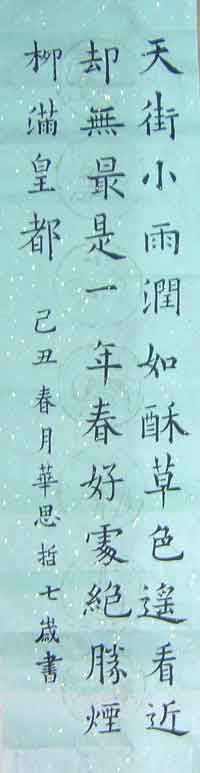 天街小雨潤如酥草色遙看近
却無最是一年春好處絕勝煙
柳滿皇都
己丑春月華思哲七歲書